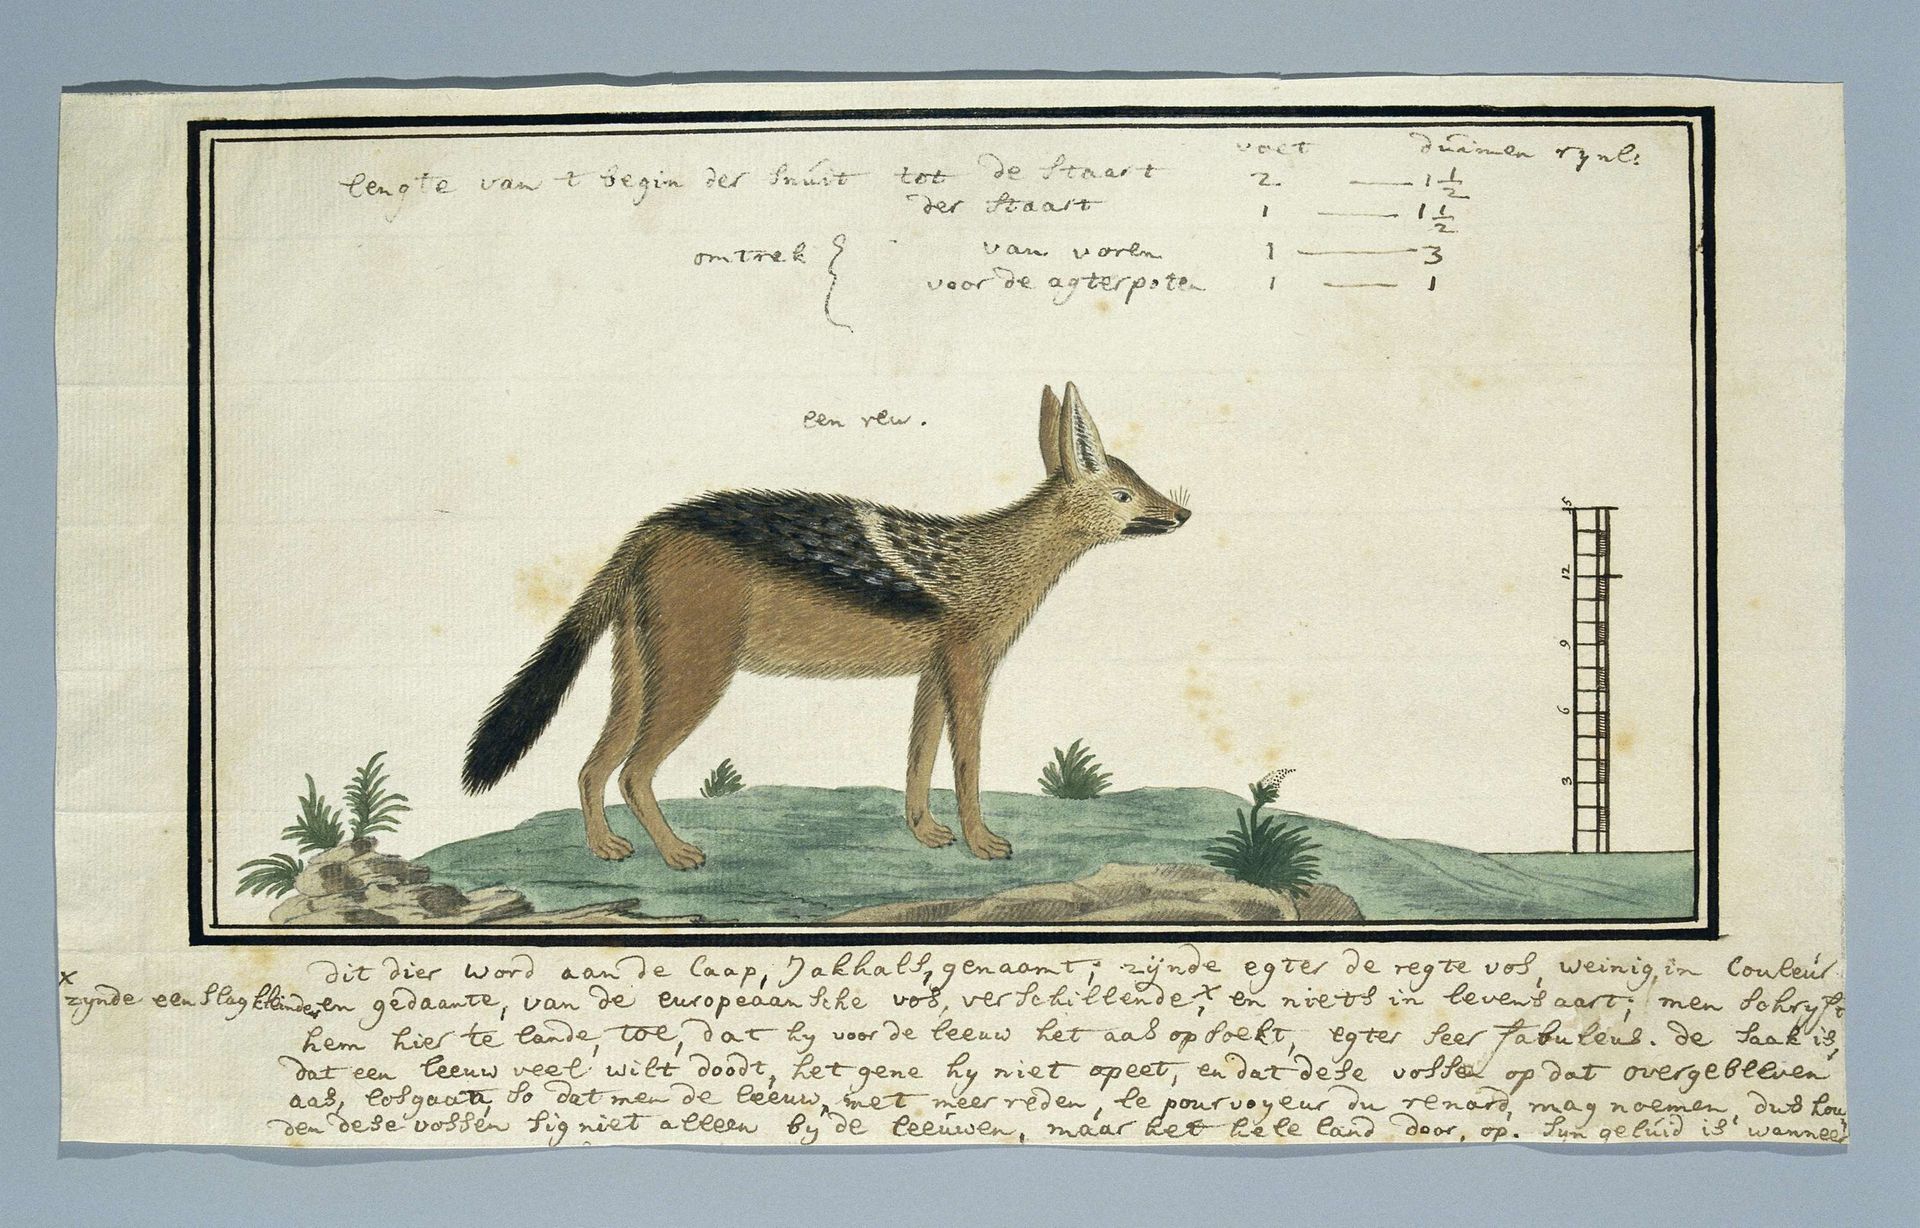 voet duimen rynl:
lengte van t begin der snuit tot de staart 2 — 1 1/2
der staart 1 — 1 1/2
omtrek { van voren 1 — 3
voor de agterpoten 1 — 1
een reu.
15
12
9
6
3
dit dier word aan de Caap, Jakhals, genaamt; zijnde egter de regte vos, weinig in Couleur
x zynde een slag kleinder en gedaante, van de europeaansche vos, verschillende x, en niets in levens aart; men schryft
hem hier te lande, toe, dat hy voor de leeuw het aas opsoekt, egter seer fabuleus. de saak is,
dat een leeuw veel wilt doodt, het gene hy niet opeet, en dat dese vossen op dat overgebleven
aas, losgaan, so dat men de leeuw, met meer reden, le pourvoyeur du renard, mag noemen, dus hou
den dese vossen sig niet alleen by de leeuwen, maar het hele land door, op. Syn geluid is wanneer